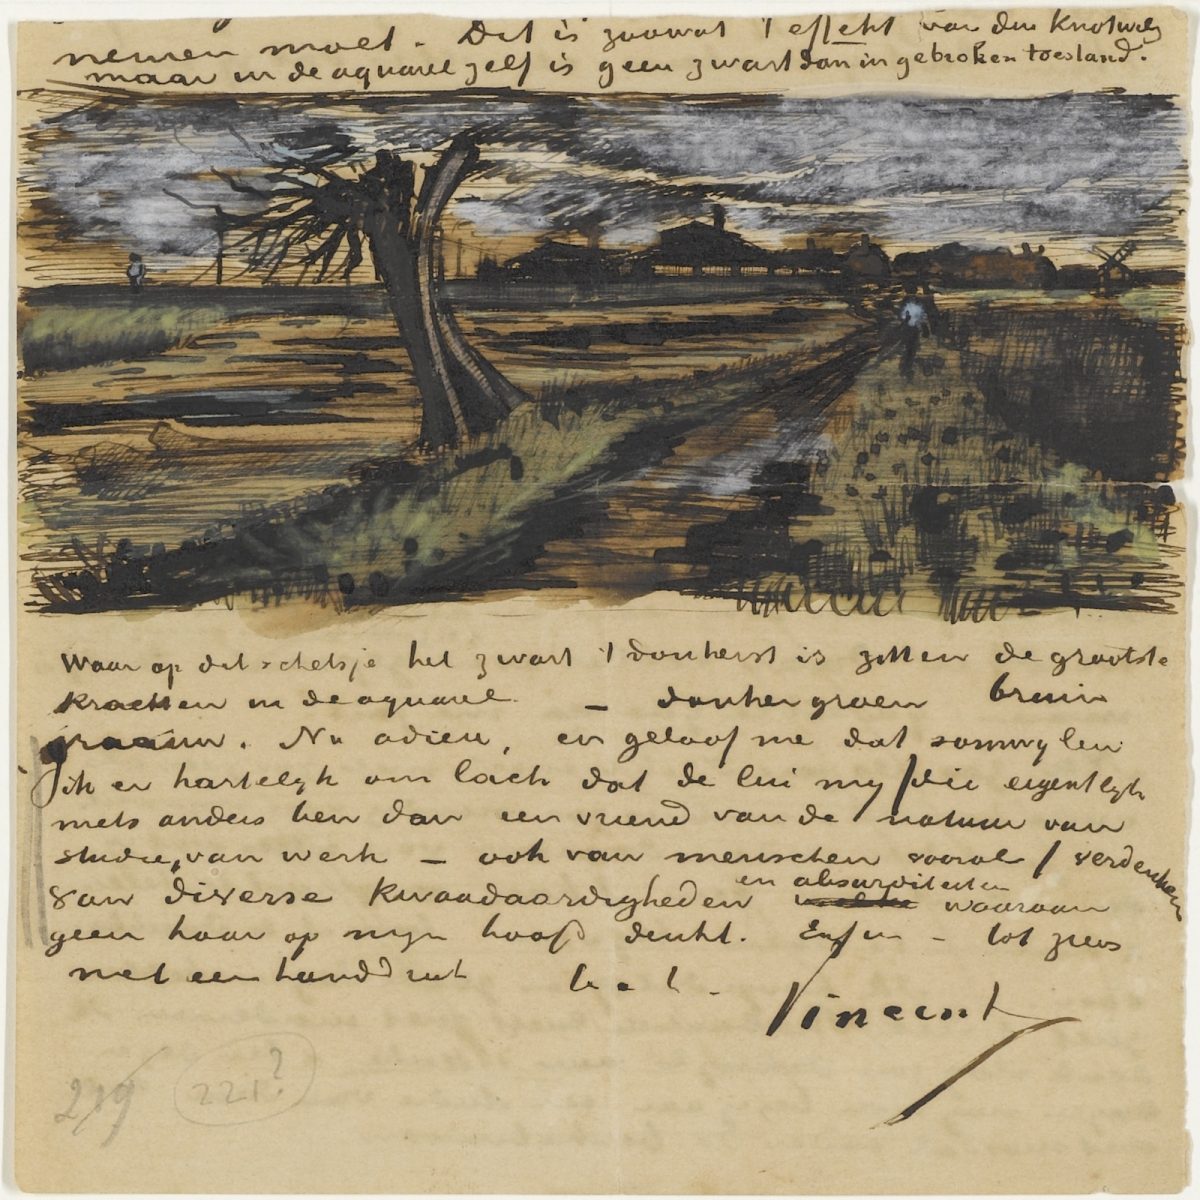 nemen moet. Dit is zoowat 't effekt van den Knotwilg
maar in de aquarel zelf is geen zwart dan in gebroken toestand.
Waar op dit schetsje het zwart 't donkerst is zitten de grootste
krachten in de aquarel – donkergroen bruin
graauw. Nu adieu, en geloof me dat somwylen
ik er hartelyk om lach dat de lui my /die eigentlyk
niets anders ben dan een vriend van de natuur van
studie, van werk – ook van menschen vooral/ verdenken
van diverse kwaadaardigheden en absurditeiten waaraan
geen haar op myn hoofd denkt. Enfin – tot ziens
met een handdruk t. à t.
Vincent
219
221?